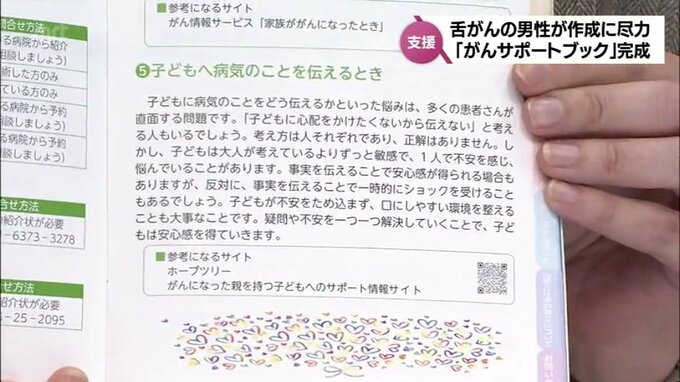 支援
舌がんの男性が作成に尽力
「がんサポートブック」完成
■参考になるサイト
がん情報サービス「家族ががんになったとき」
❺子どもへ病気のことを伝えるとき
子どもに病気のことをどう伝えるかといった悩みは、多くの患者さんが
直面する問題です。「子どもに心配をかけたくないから伝えない」と考え
る人もいるでしょう。考え方は人それぞれであり、正解はありません。し
かし、子どもは大人が考えているよりずっと敏感で、1人で不安を感じ、
悩んでいることがあります。事実を伝えることで安心感が得られる場合も
ありますが、反対に、事実を伝えることで一時的にショックを受けること
もあるでしょう。子どもが不安をため込まず、口にしやすい環境を整える
ことも大事なことです。疑問や不安を一つ一つ解決していくことで、子ど
もは安心感を得ていきます。
■参考になるサイト
ホープツリー
がんになった親を持つ子どもへのサポート情報サイト
合せ方法
る病院から紹介
相談しましょう）
術した方のみ
ている方のみ
る病院から予約
相談しましょう）
る病院から予約
談しましょう）
合せ方法
紹介状が必要
-6373-3278
せ方法
状が必要
-25-2095